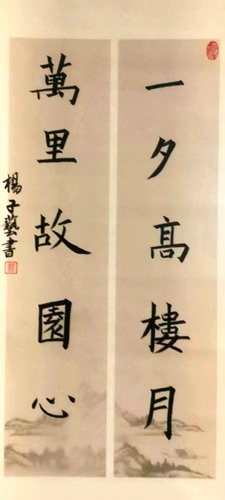 一夕高樓月
萬里故園心
楊子藝書